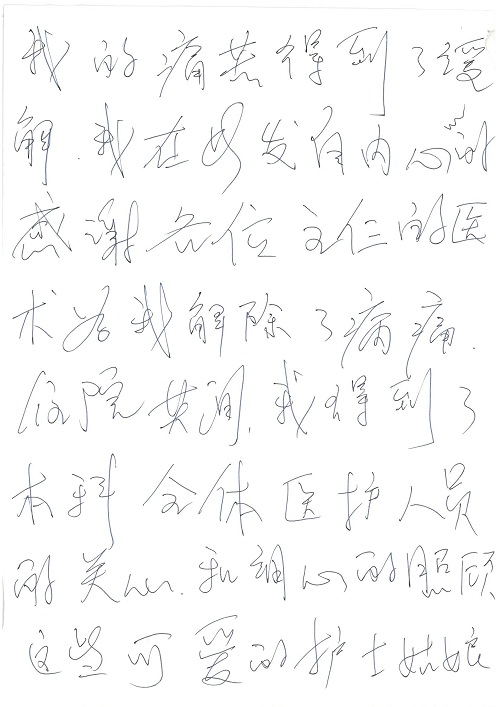 我的痛苦得到了缓
解.我在此发自内心的
感谢各位主任的医
术给我解除了病痛.
住院其间,我得到了
本科全体医护人员
的关心.和细心的照顾
这些可爱的护士姑娘